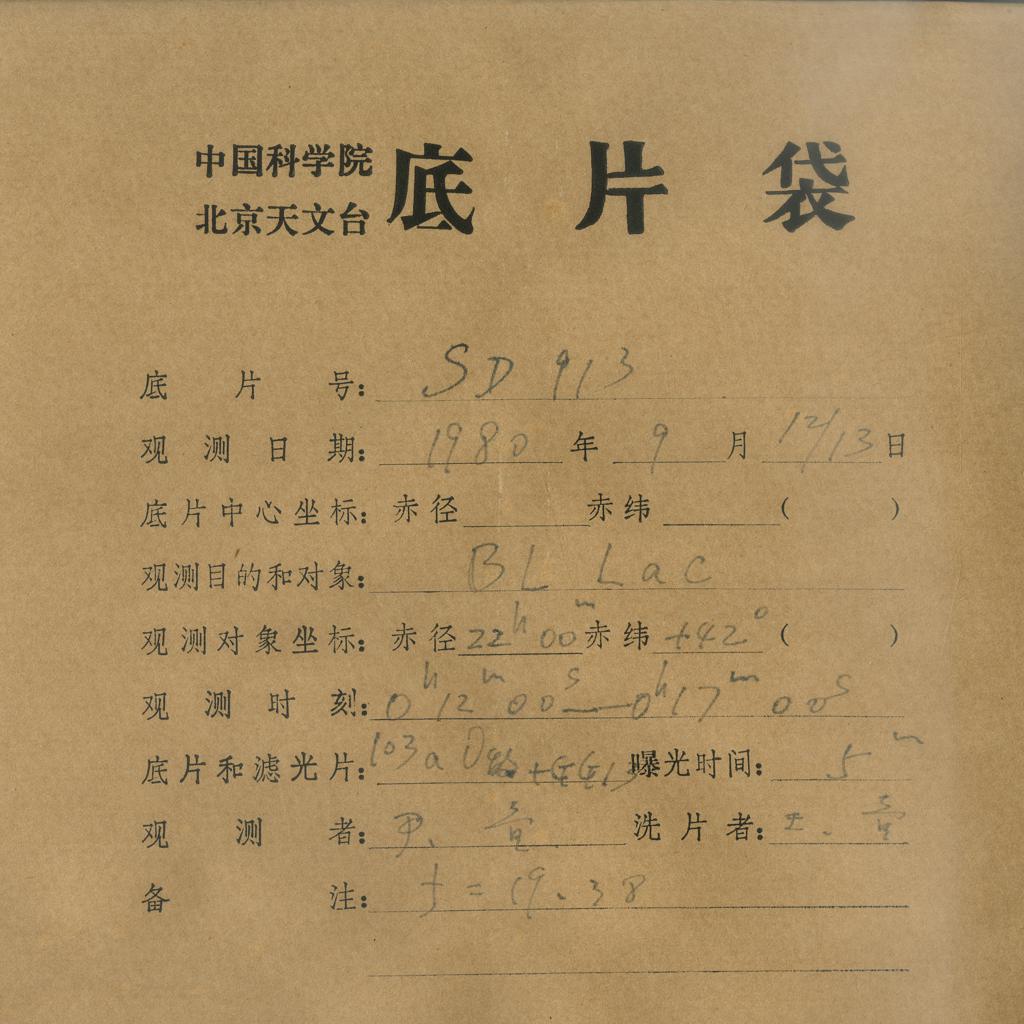 中国科学院
北京天文台
底片袋
底片号: SD 913
观测日期: 1980 年 9 月 12/13 日
底片中心坐标: 赤径 赤纬 ( )
观测目的和对象: BL Lac
观测对象坐标: 赤径 22h 00m 赤纬 +42° ( )
观测时刻: 0h 12m 00s — 0h 17m 00s
底片和滤光片: 103a D 曝光时间: 5m
观测者: 洗片者:
备注: f = 19.38